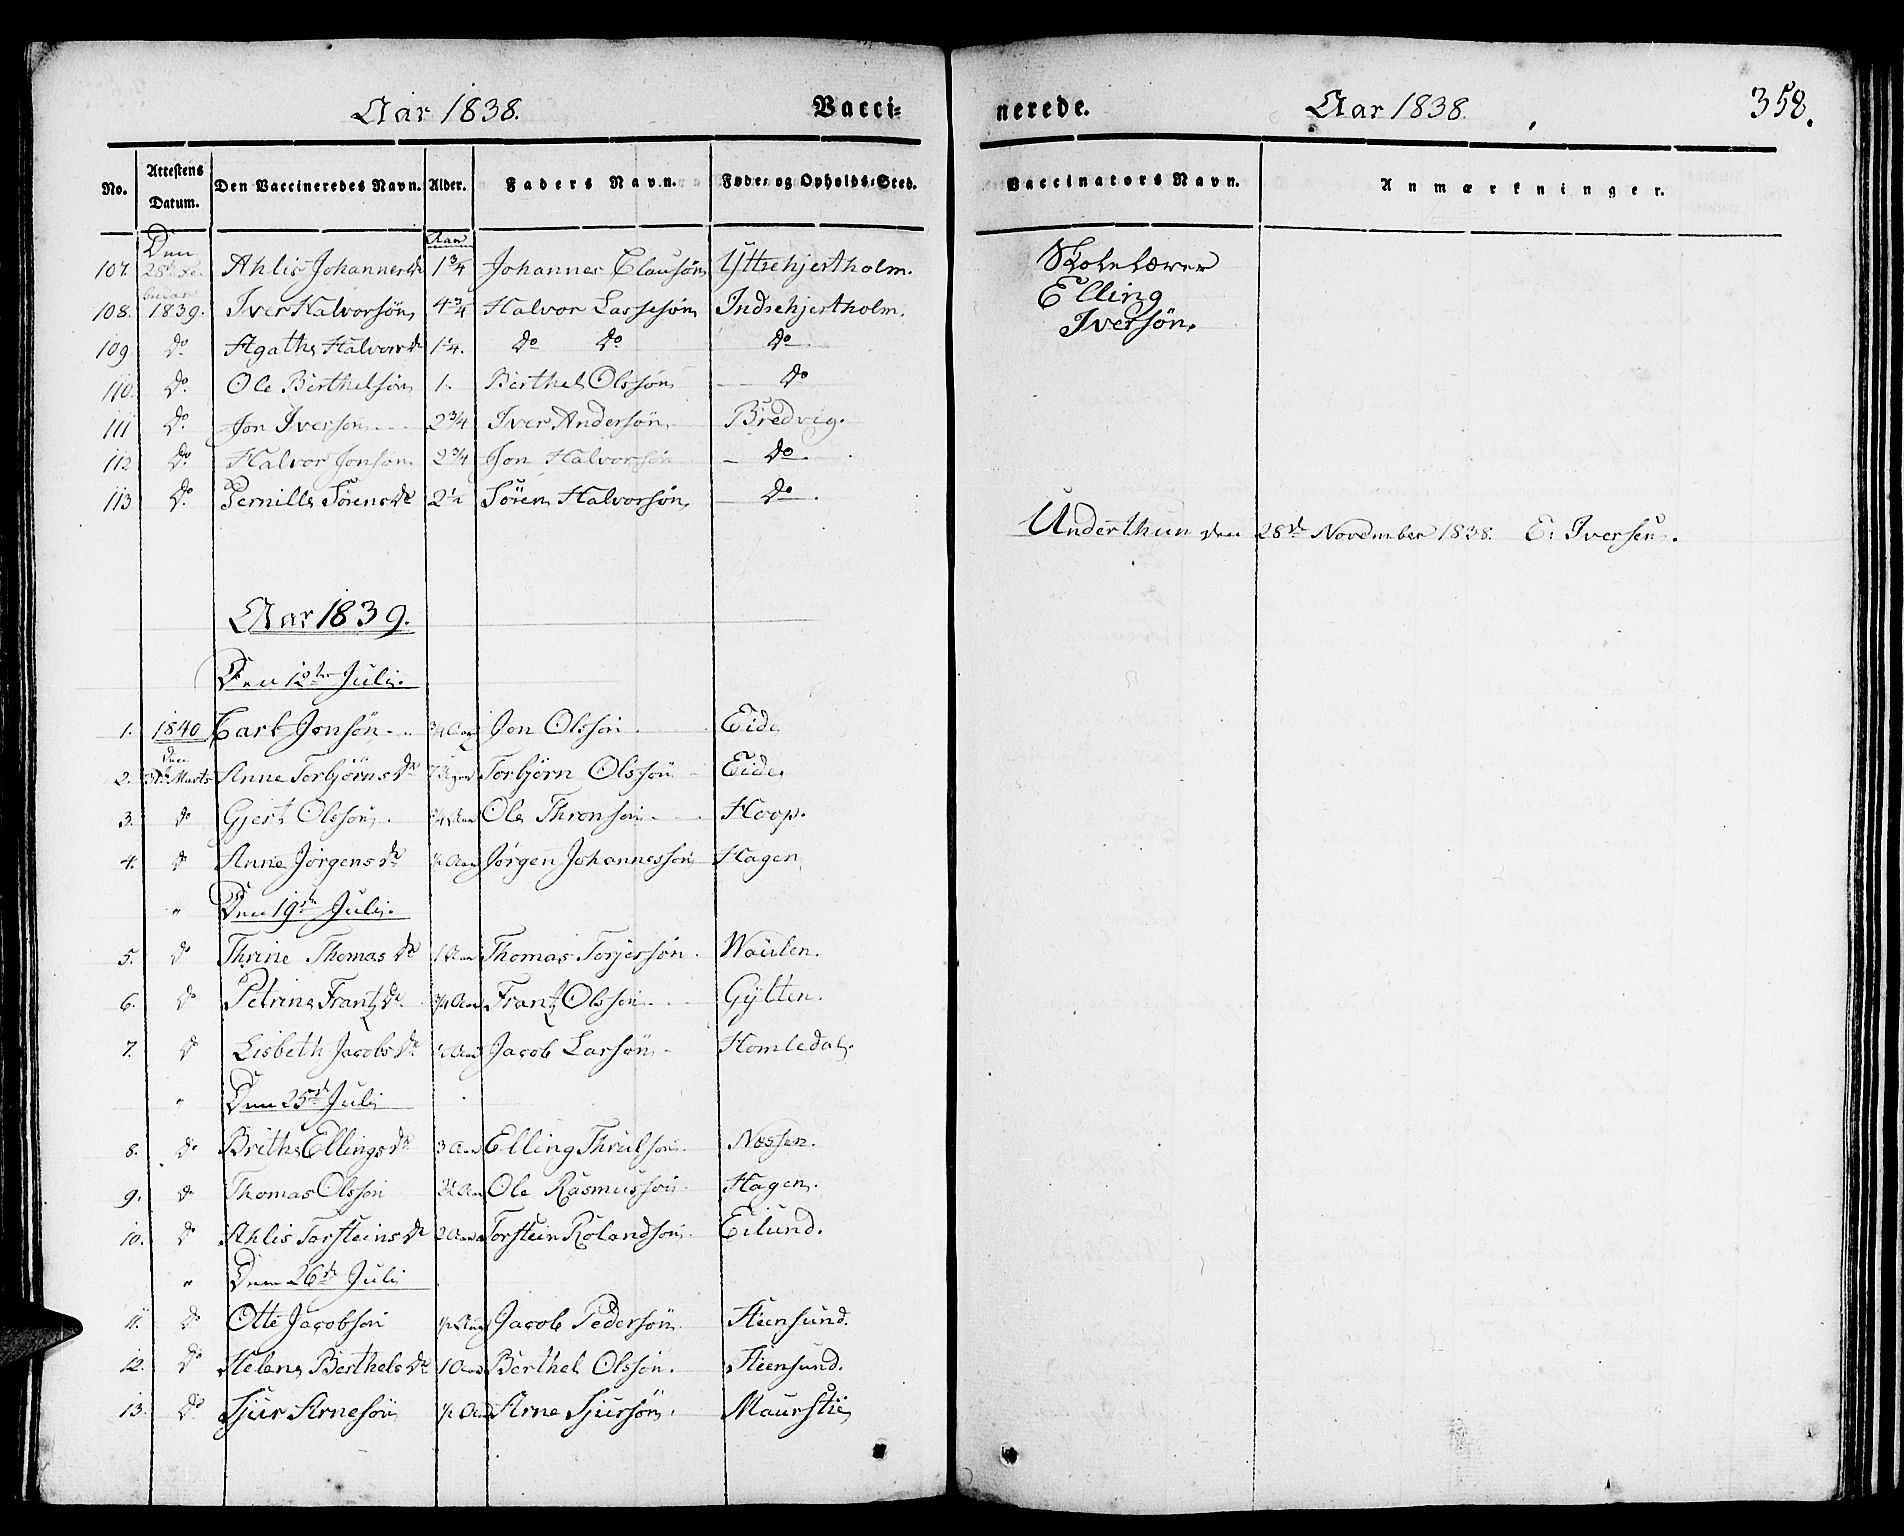 Aar 1838. Vacci- nerede. Aar 1838. 358.
No. Attestens Datum. Den Vaccineredes Navn. Alder. Faders Navn. Føde- og Opholds-Sted. Vaccinators Navn. Anmærkninger.
Den Aar
107. 28de Ahlis Johannesdr 1 3/4 Johannes Clausøn Yttrehjertholm. Skolelærer
108. 1839. Iver Halvorsøn 4 3/4 Halvor Lassesøn Indrehjertholm. Elling
109 do Agathe Halvorsdr 1 1/4. do do do. Iversøn.
110. do. Ole Berthelsøn 1. Berthel Olssøn do
111 do. Jon Iversøn 2 3/4 Iver Andersøn Bredvig.
112 do. Halvor Jonsøn 2 3/4 Jon Halvorsøn do.
113 do. Pernille Sørensdr 2 1/2 Sören Halvorsøn do.
Underthun den 28de November 1838. E: Iversen.
Aar 1839.
Den 12te Juli.
1. 1840 Carl Jonsön 3/4 Aar Jon Olssön Eide
2. den 31te Marts Anne Torbjörnsdr Torbjörn Olssön Eide.
3. do Gjert Olssön 3/4 Aar Ole Thronsön Hoop.
4. do Anne Jörgensdr 1/2 Aar Jörgen Johannessön Hagen
" Den 19de Juli.
5. do Thrine Thomasdr 1 Aar Thomas Torjersön. Waulen.
6. do Petrine Frantzdr. 3/4 Aar Frantz Olssön Gÿtten.
7. do Lisbeth Jacobsdr 1/2 Aar Jacob Larsön Homledal.
" Den 25de Juli
8. do Brithe Ellingsdr 3 Aar Elling Thrulsön Nessen.
9. do Thomas Olssön Aar Ole Rasmussön Hagen.
10. do Ahlis Torsteinsdr 2 Aar Torstein Rolandsön Eilund.
" Den 26de Juli
11. do Otte Jacobsön 1/2 Aar Jacob Pedersön Steensund.
12. do Helene Berthelsdr 1 Aar Berthel Olssön. Steensund.
13. do Sjur Arnesön 1/2 Aar Arne Sjursön. Maurstie